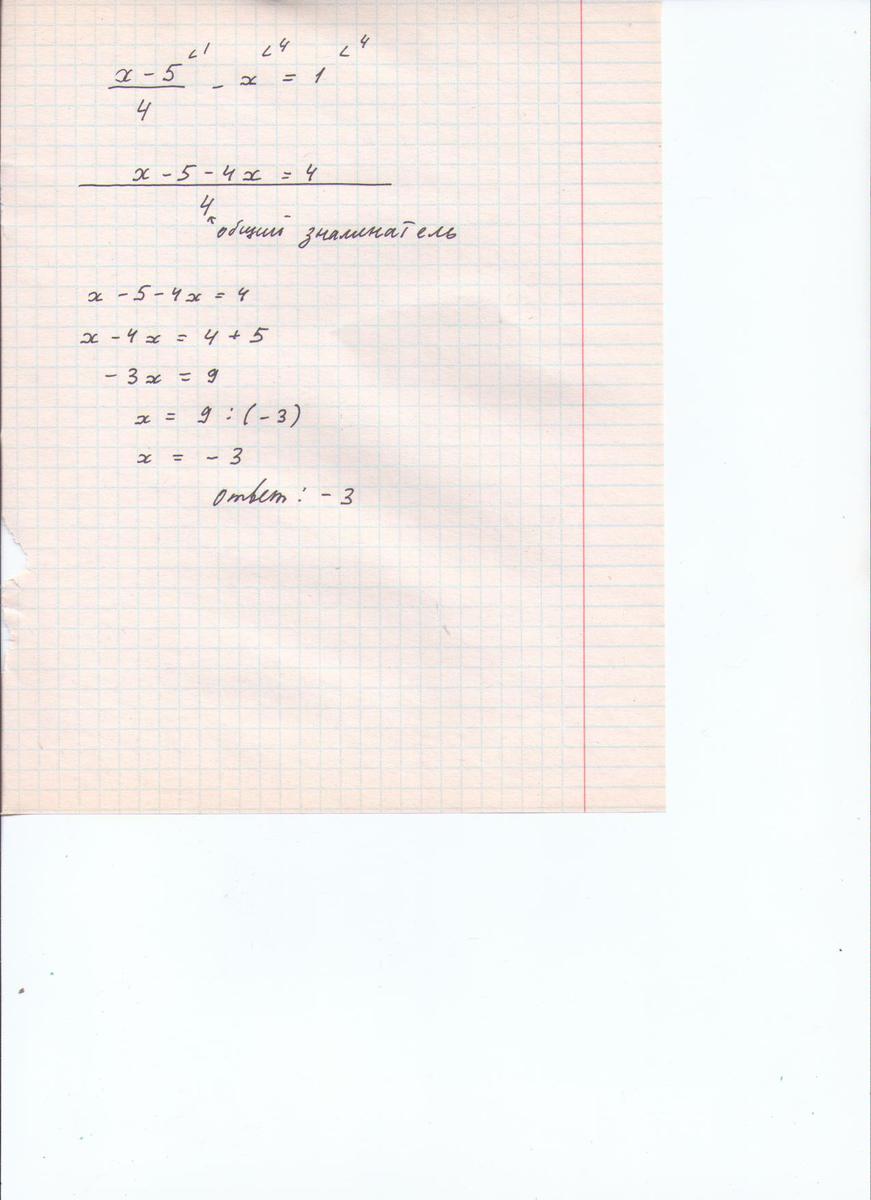 ∟1 ∟4 ∟4
x - 5 / 4 - x = 1
x - 5 - 4x = 4
4
общий знаминатель
x - 5 - 4x = 4
x - 4x = 4 + 5
- 3x = 9
x = 9 : (- 3)
x = - 3
ответ: - 3